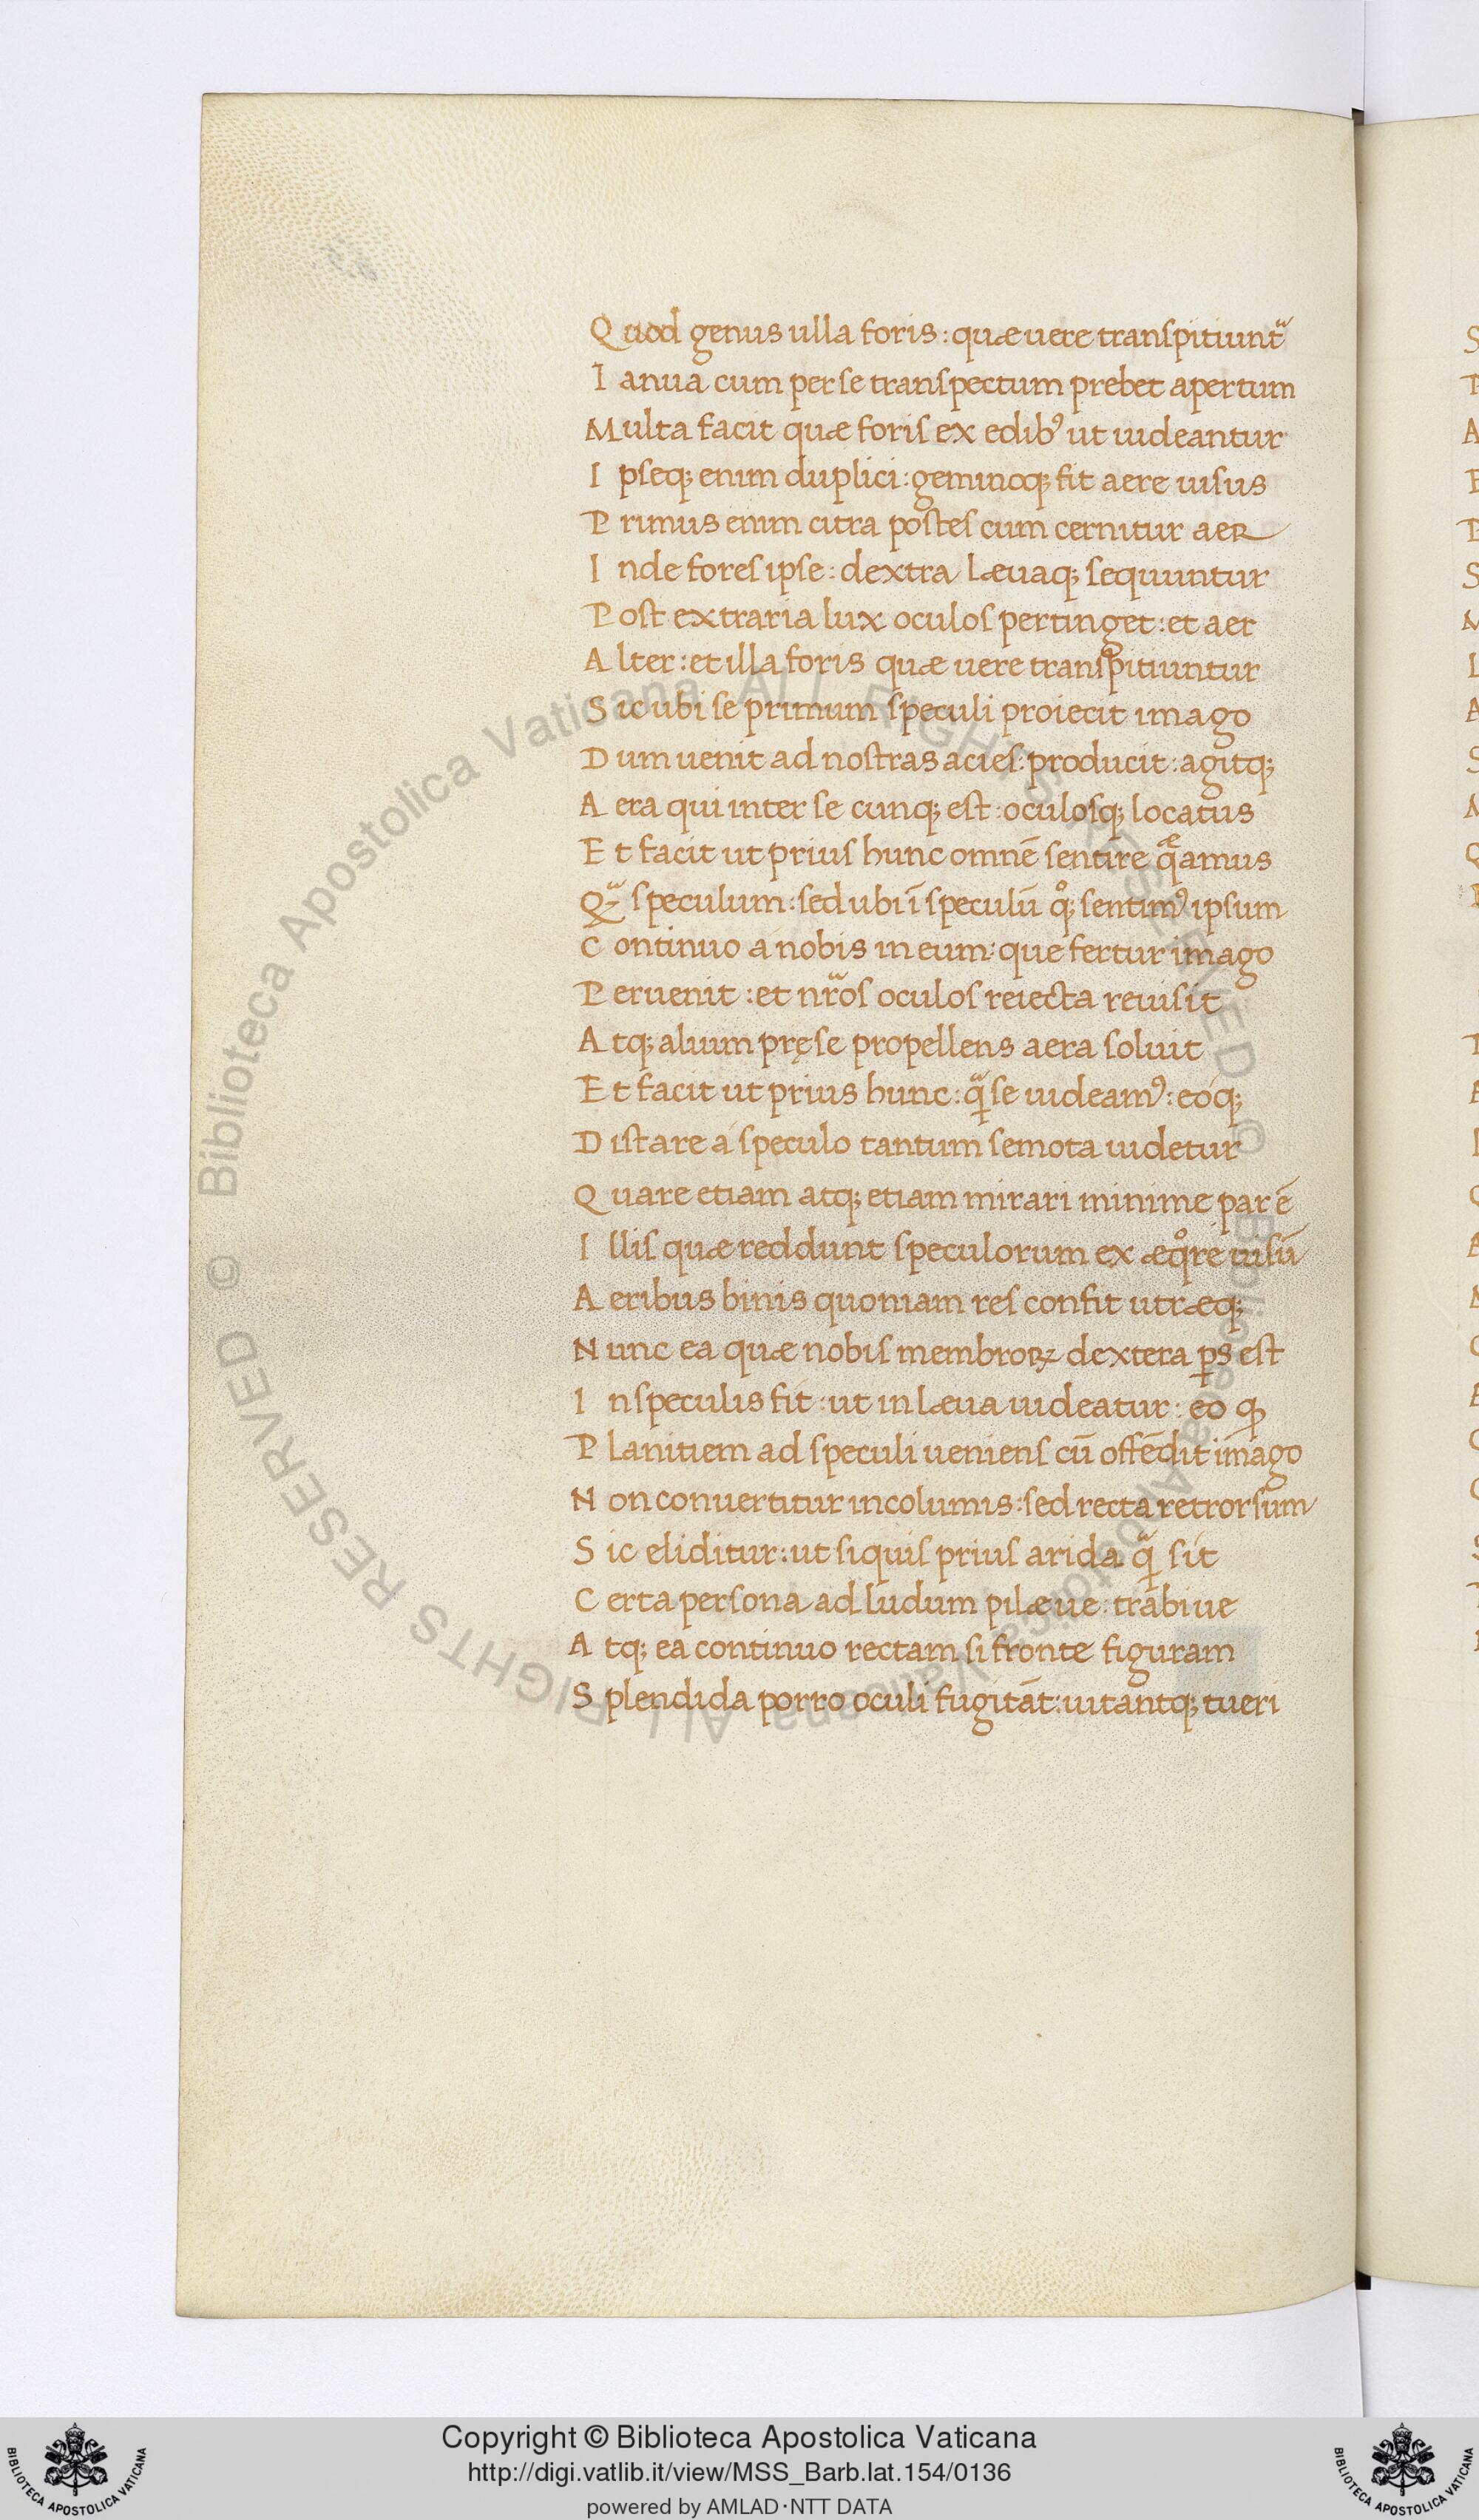 Quod genus ulla foris: quæ uere transpitiuntᷓ
Ianua cum per se transpectum prebet apertum
Multa facit quæ foris ex edibꝰ ut uideantur
Ipseq; enim duplici: geminoq; fit aere uisus
Primus enim citra postes cum cernitur aer
Inde fores ipse: dextra læuaq; sequuntur
Post extraria lux oculos pertinget: et aer
Alter: et illa foris quæ uere transpitiuntur
Sic ubi se primum speculi proiecit imago
Dum uenit ad nostras acies: producit: agitq;
Aera qui inter se cunq; est: oculosq; locatus
Et facit ut prius hunc omnē sentire q̨ͣamus
Qᷓ speculum: sed ubi ī speculū qͦ; sentimꝰ ipsum
Continuo á nobis in eum: que fertur imago
Peruenit: et nrᷓos oculos reiecta reuisit
Atq; alium pręse propellens aera soluit
Et facit ut prius hunc: ꝗᷓ se uideamꝰ: eóq;
Distare á speculo tantum semota uidetur
Quare etiam atq; etiam mirari minime par ē
Illis quæ reddunt speculorum ex æqͦre uisū
Aeribus binis quoniam res confit utræq;
Nunc ea quæ nobis membroꝝ dextera ꝑs est
In speculis fit: ut in læua uideatur: eo ꝙ
Planitiem ad speculi ueniens cū offēdit imago
Non conuertitur incolumis: sed recta retrorsum
Sic eliditur: ut siquis prius arida ꝗᷓ sit
Certa persona ad ludum pilæue: trabiue
Atq; ea continuo rectam si fronte figuram
Splendida porro oculi fugitāt: uitantq; tueri
Copyright © Biblioteca Apostolica Vaticana
http://digi.vatlib.it/view/MSS_Barb.lat.154/0136
powered by AMLAD·NTT DATA